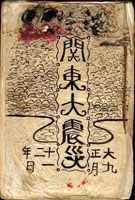 関東大震災
大正
十二年
九月
一日